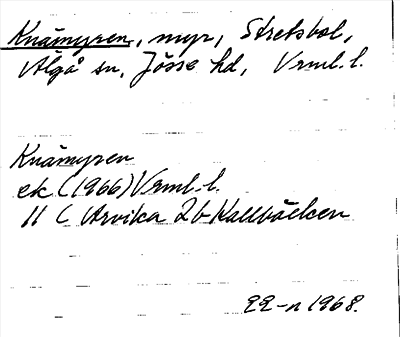 Knämyren, myr, Stretsbol,
Älgå sn, Jösse hd, Vrml. l.
Knämyren
ek. (1966) Vrml. l.
11 C Arvika 2b Kallbäcken
22-n 1968.